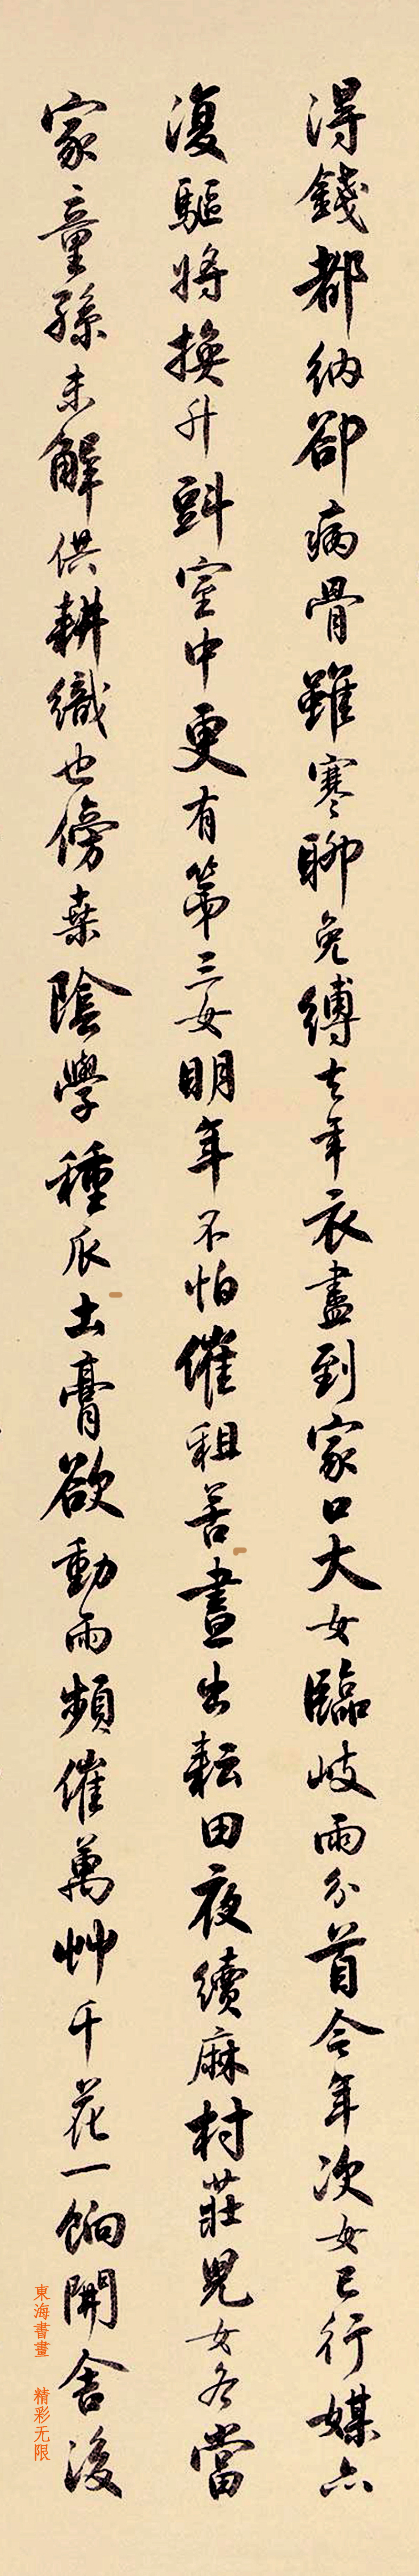 得錢都納卻病骨雖寒聊免縛去年衣盡到家口大女臨岐兩分首今年次女已行媒亦
復驅將換升斗室中更有第三女明年不怕催租苦晝出耘田夜績麻村莊兒女各當
家童孫未解供耕織也傍桑陰學種瓜土膏欲動雨頻催萬艸千花一餉開舍後
東海書畫 精彩无限